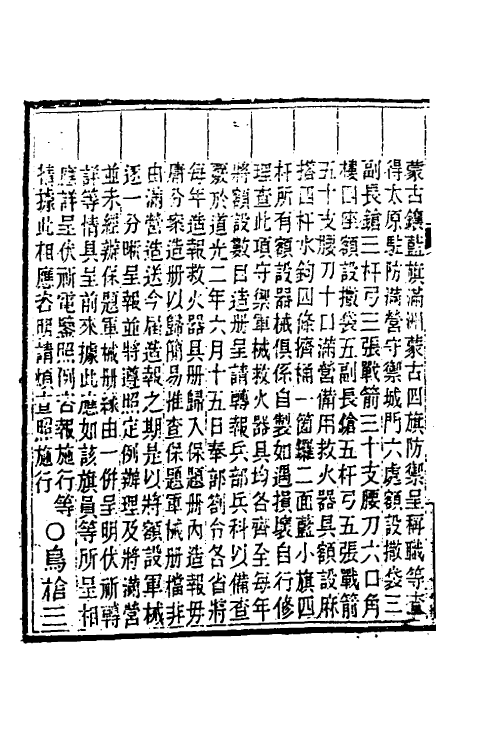 蒙古鑲藍旗滿洲蒙古四旗防禦呈稱職等查
得太原駐防滿營守禦城門六處額設撒袋三
副長鎗三杆弓三張戰箭三十支腰刀六口角
樓四座額設撒袋五副長鎗五杆弓五張戰箭
五十支腰刀十口滿營備用救火器具額設麻
搭四杆水鈎四條擠桶一箇鑼二面藍小旗四
杆所有額設器械俱係自製如遇損壞自行修
理查此項守禦軍械救火器具均各齊全每年
將額設數目造册呈請轉報兵部兵科以備查
覈於道光二年六月十五日奉部劄台各省將
每年造報救火器具册歸入保題册內造報毋
庸分案造册以歸簡易推查保題軍械册檔非
由滿營造送今屆造報之期是以將額設軍械
逐一分晰呈報並將遵照定例辦理及將滿營
並未經辦保題軍械册緣由一併呈明伏祈轉
詳等情具呈前來據此應如該旗員等所呈相
應詳呈伏祈電鑒照例咨報施行等
情據此相應咨明請煩查照施行　○鳥槍三